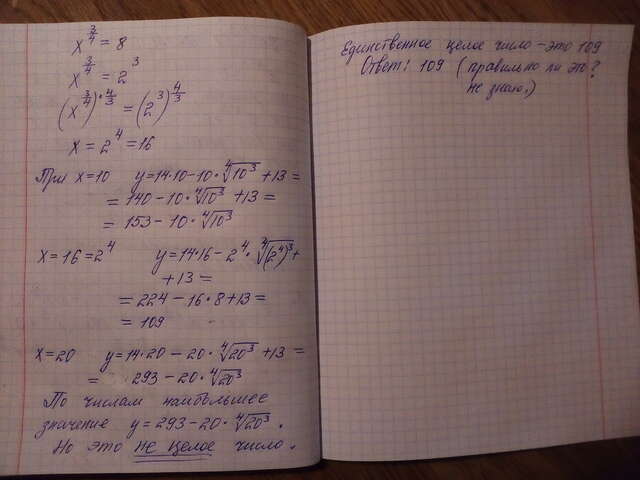 x^(3/4) = 8
x^(3/4) = 2^3
(x^(3/4))^(·4/3) = (2^3)^(4/3)
x = 2^4 = 16
При x=10 y=14·10-10·∜10^3 +13=
= 140-10·∜10^3 +13=
= 153-10·∜10^3
x=16=2^4 y=14·16-2^4·∜(2^4)^3+
+13=
= 224-16·8+13=
= 109
x=20 y=14·20-20·∜20^3 +13=
= 293-20·∜20^3
По числам наибольшее
значение y=293-20·∜20^3.
Но это не целое число.
Единственное целое число-это 109
Ответ: 109 (правильно ли это?
не знаю.)